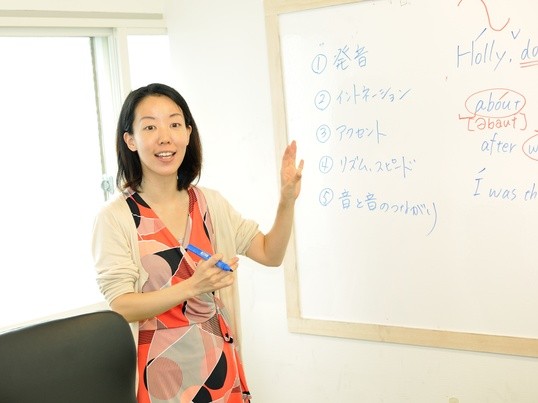 ① 発音
② イントネーション
③ アクセント
④ リズム、スピード
⑤ 音と音のつながり
Holly, do
about
[əbaut]
after w
I was th